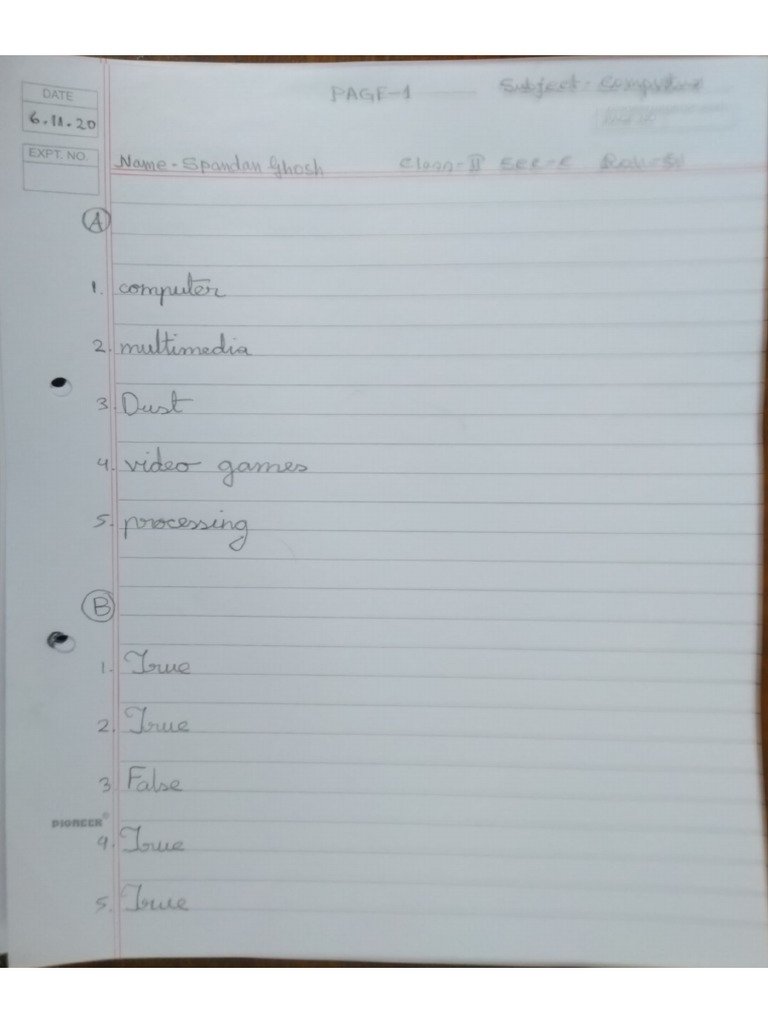 PAGE-1 Subject - Computer
DATE
6.11.20
EXPT. NO.
Name - Spandan Ghosh Class - II Sec - C Roll -
A
1. computer
2. multimedia
3. Dust
4. video games
5. processing
B
1. True
2. True
3. False
PIONEER
4. True
5. True